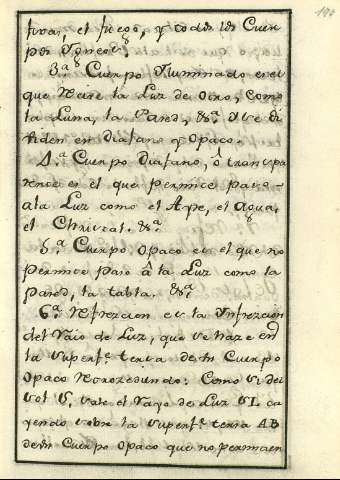 fixas, el fuego, y todos los Cuer-
pos Igneos.
3.ª Cuerpo Iluminado es el
que Recive la Luz de otro, como
la Luna, la Pared, &ª. Que se di
viden en Diafano y Opaco.
4.ª Cuerpo Diafano, ô transpa
rente es el que permite paso
a la Luz como el Ayre, el Agua,
el Christal. &ª.
5.ª Cuerpo Opaco es el que no
permite paso â la Luz como la
Pared, la tabla. &ª
6.ª Reflexcion es la Inflexcion
del Raio de Luz, que se haze en
la superf.e tersa de un Cuerpo
Opaco Retrozediendo: Como si del
sol S, sale el Rayo de Luz SI, ca
yendo sobre la superf.e tersa AB
de un Cuerpo Opaco que no permita en